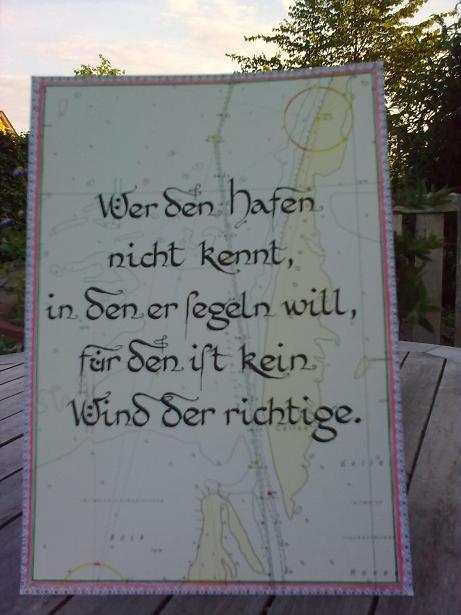 Wer den Hafen
nicht kennt,
in den er segeln will,
für den ist kein
Wind der richtige.